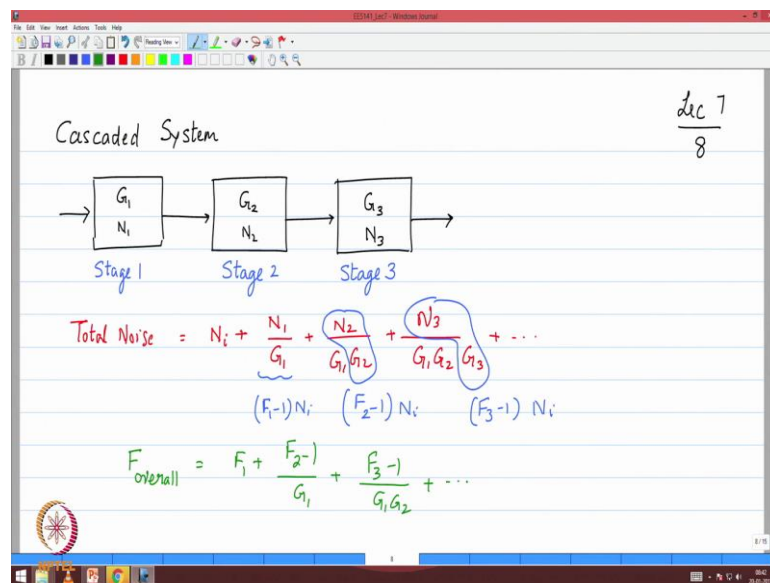 EE5141_Lec7 - Windows Journal
File Edit View Insert Actions Tools Help
Reading View
B I
Lec 7
8
Cascaded System
G₁ G₂ G₃
N₁ N₂ N₃
Stage 1 Stage 2 Stage 3
Total Noise = Nᵢ + N₁/G₁ + N₂/G₁G₂ + N₃/G₁G₂G₃ + ...
(F₁-1)Nᵢ (F₂-1)Nᵢ (F₃-1) Nᵢ
F overall = F₁ + F₂-1/G₁ + F₃-1/G₁G₂ + ...
NPTEL
8
8 / 15
08:42